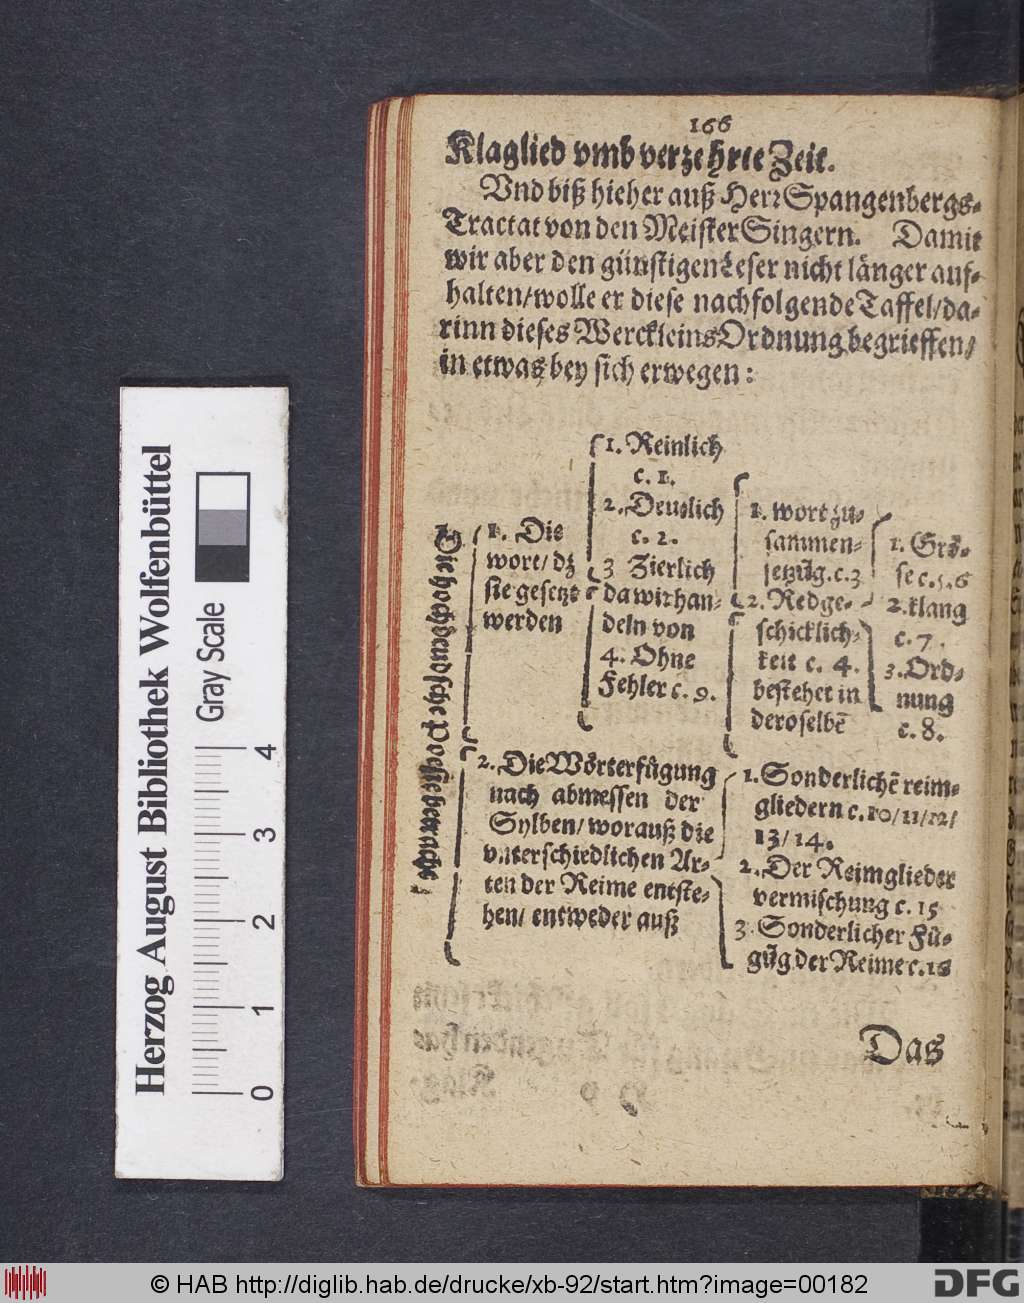 166
Klaglied vmb verzehrte Zeit.
Vnd biß hieher auß Herꝛ Spangenbergs-
Tractat von den Meister Singern. Damit
wir aber den günstigen Leser nicht länger auf-
halten/wolle er diese nachfolgende Taffel/da-
rinn dieses Werckleins Ordnung begrieffen/
in etwas bey sich erwegen:
Die hochdeudsche Poesie betracht
1. Die
wort/ dz
sie gesetzt
werden
1. Reinlich
c. 1.
2. Deutlich
c. 2.
3 Zierlich
da wir han-
deln von
4. Ohne
Fehler c. 9.
1. wort zu-
sammen-
setzũg. c. 3
2. Redge-
schicklich-
keit c. 4.
bestehet in
deroselbẽ
1. Grö-
se c. 5. 6
2. klang
c. 7.
3. Ord-
nung
c. 8.
2. Die Wörterfügung
nach abmessen der
Sylben/ worauß die
vnterschiedlichen Ar-
ten der Reime entste-
hen/ entweder auß
1. Sonderlichẽ reim-
gliedern c. 10/11/12/
13/ 14.
2. Der Reimglieder
vermischung c. 15
3. Sonderlicher Fü-
gũg der Reime c.
Das
Herzog August Bibliothek Wolfenbüttel
Gray Scale
0 1 2 3 4
© HAB http://diglib.hab.de/drucke/xb-92/start.htm?image=00182
DFG